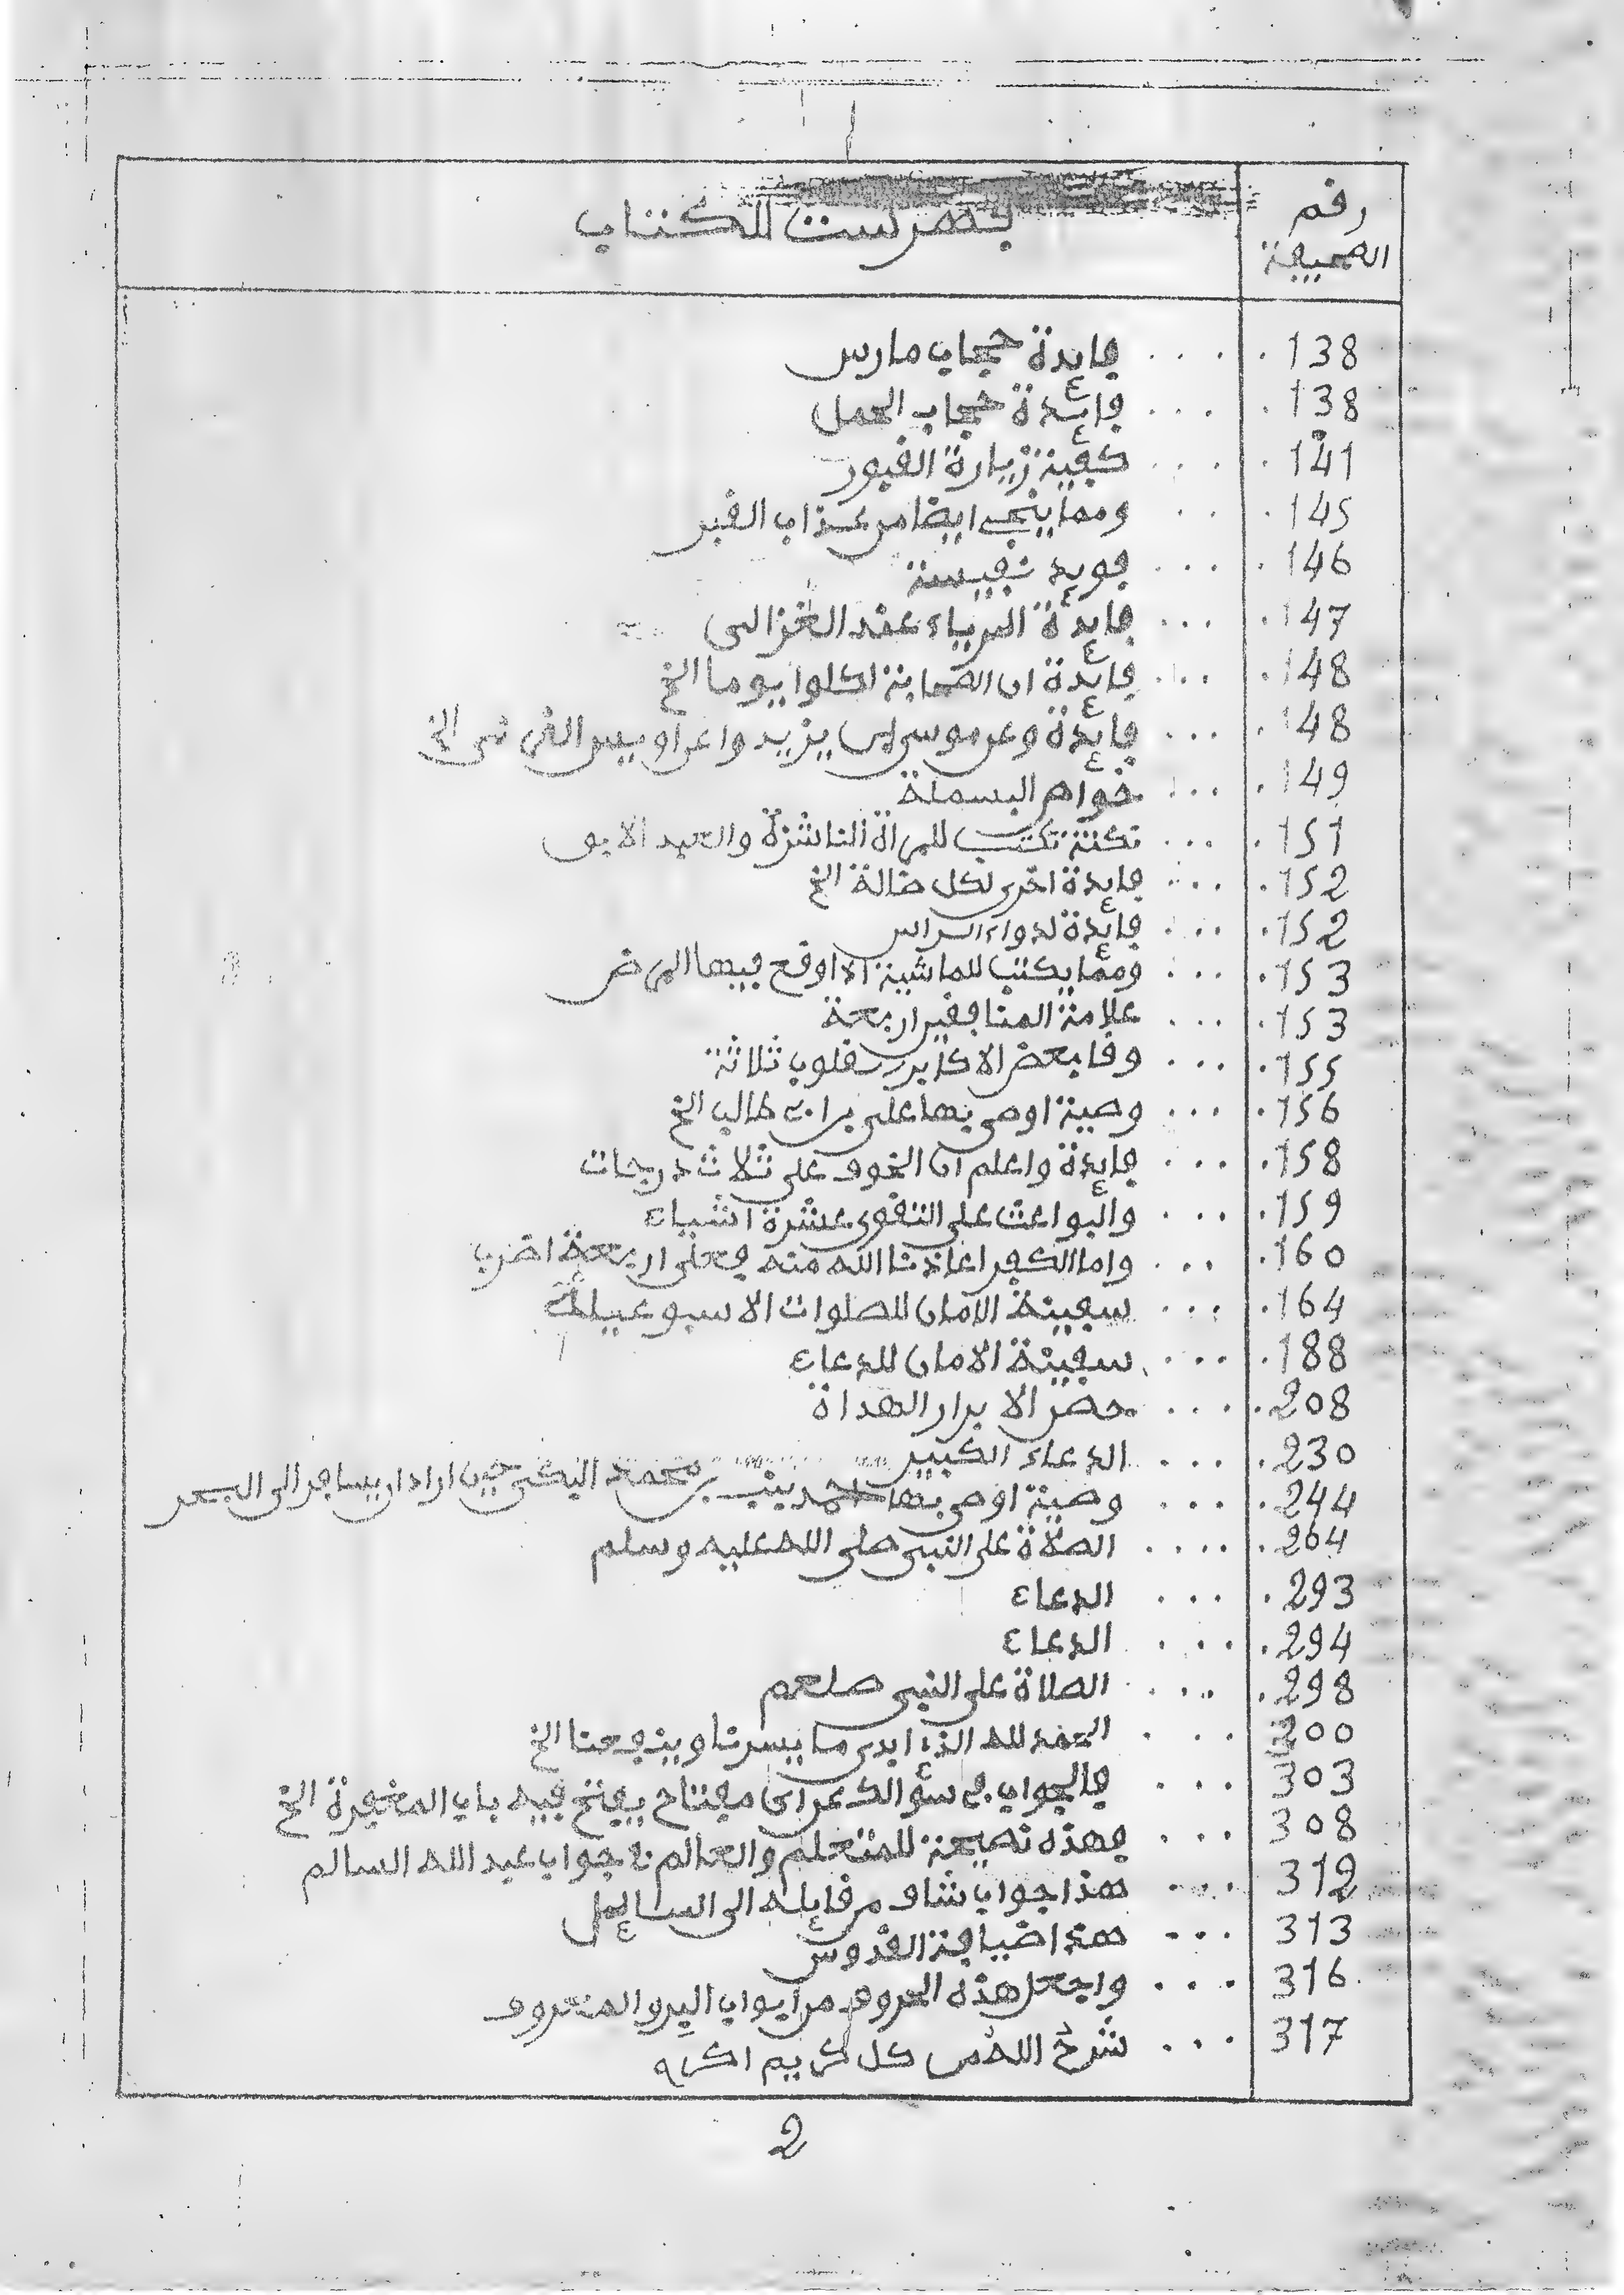 رقم الصحيفة
فهرست للكتاب
138 .... فايدة حجاب مارس
138 .... فايدة حجاب الحمل
141 .... كيفية زيارة القبور
145 ... ومما ينجي ايضا من عذاب القبر
146 .... فويد نفيسة
147 .... فايدة الرياء عند الغزالي
148 .... فايدة ان الصحابة اكلوا يوما الخ
148 .... فايدة وعن موسى ابن يزيد واعن اويس القرني الخ
149 .... خوآص البسملة
151 .... نكتة تكتب للمراة الناشزة والعبد الابق
152 .... فايدة اخرى لكل ضالة الخ
152 .... فايدة لدواء الراس
153 .... ومما يكتب للماشية الا اوقع فيها المرض
153 .... علامة المنافقين اربعة
155 .... وقا بعض الاكابر قلوب ثلاثة
156 .... وصية اوصى بها على بن ابي طالب الخ
158 .... فايدة واعلم ان الخوف على ثلاث درجات
159 .... والبواعث على التقوى عشرة اشياء
160 .... واما الكفر اعاذنا الله منه فعلى اربعة اضرب
164 .... سفينة الامان للصلوات الاسبوعيلة
188 .... سفينة الامان للدعاء
208 .... حضر الابرار الهداة
230 .... الدعاء الكبير
244 .... وصية اوصى بها احمد بن محمد البكي حين اراد ان يسافر الى البحر
264 .... الصلاة على النبي صلى الله عليه وسلم
293 .... الدعاء
294 .... الدعاء
298 .... الصلاة على النبي صلعم
200 ... الحمد لله الذي ابدى ما يسرنا وينفعنا الخ
303 ... فالجواب في سؤالك عن اى مفتاح يفتح فيه باب المغفرة الخ
308 ... فهذه نصيحة للمتعلم والعالم في جواب عبد الله السالم
312 ... هذا جواب شاف من قايله الى السايل
313 ... هذا ضيافة القدوس
316 ... واجعل هذه الحروف من ابواب البر والمعروف
317 ... شرح الله من كل كريم اكرم
2